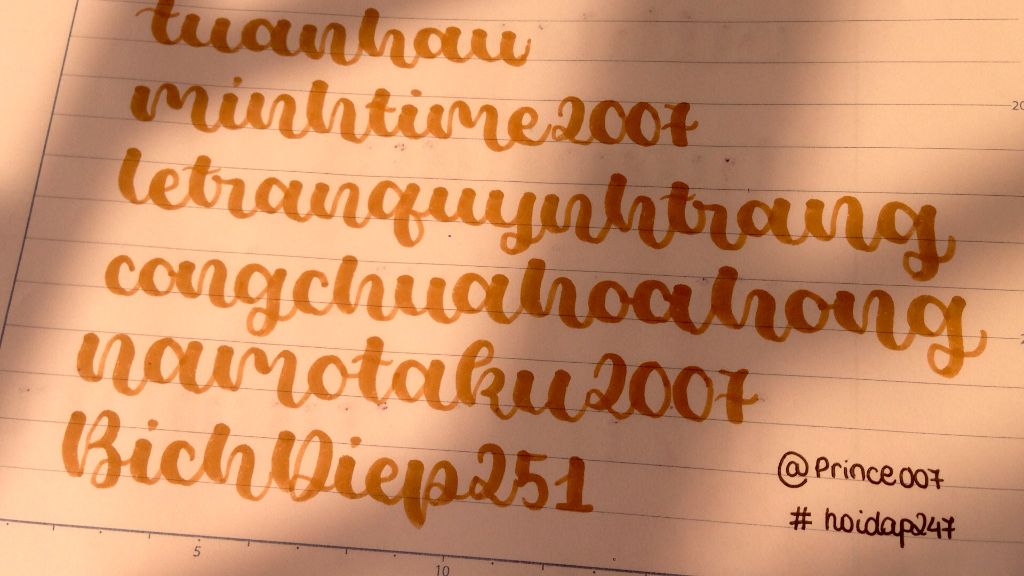 tuanhau
minhtime2007
letranquynhtrang
congchuahoahong
namotaku2007
BichDiep251
@Prince007
# hoidap247
20
5
10